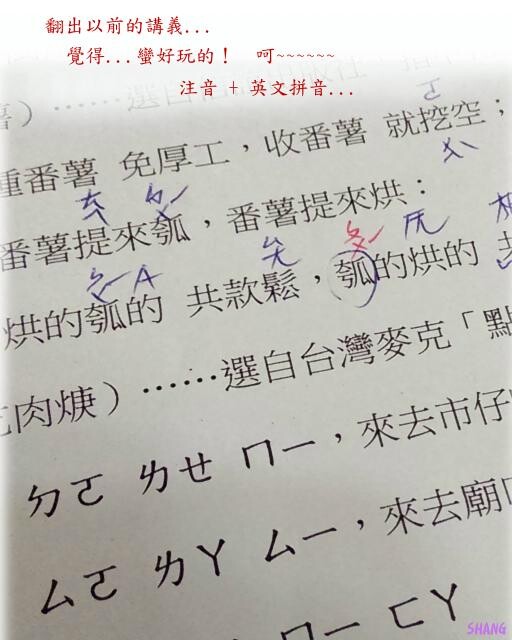 翻出以前的講義...
覺得...蠻好玩的！ 呵~~~~~~
注音 + 英文拼音...
番薯 免厚工，收番薯 就挖空；
番薯提來瓠，番薯提來烘：
烘的瓠的 共款鬆，瓠的烘的
肉焿）……選自台灣麥克「點
ㄉㄛ ㄌㄝ ㄇㄧ，來去市仔
ㄙㄛ ㄌㄚ ㄙㄧ，來去廟
ㄇㄧ ㄈㄚ
SHANG